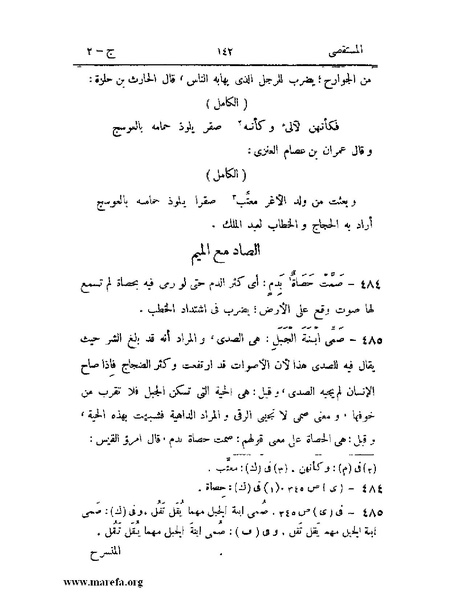 المستقصى ١٤٢ ج - ٢
من الجوارح؛ يضرب للرجل الذى يهابه الناس، قال الحارث بن حلزة:
(الكامل)
فكأنهن لآلئ وكأنه٢ صقر يلوذ حمامه بالعوسج
وقال عمران بن عصام العنزى:
(الكامل)
وبعثت من ولد الأغر معتّب٣ صقرا يلوذ حمامه بالعوسج
أراد به الحجاج و الخطاب لعبد الملك .
الصاد مع الميم
٤٨٤ - صَمَّتْ حَصَاةٌ بِدَمٍ: أى كثر الدم حتى لو رمى فيه بحصاة لم تسمع
لها صوت وقع على الأرض؛ يضرب فى اشتداد الخطب .
٤٨٥ - صَمِّى ابْنَةَ الْجَبَلِ: هى الصدى، و المراد أنه قد بلغ الشر حيث
يقال فيه للصدى هذا لأن الأصوات قد ارتفعت وكثر الضجاج فإذا صاح
الإنسان لم يجبه الصدى، و قيل: هى الحية التى تسكن الجبل فلا تقرب من
خوفها، و معنى صمى لا تجيبى الرقى و المراد الداهية فشبهت بهذه الحية،
و قيل: هى الحصاة على معنى قولهم: صمت حصاة بدم. قال امرؤ القيس:
(٢) فى (م): وكأنهن . (٣) فى (ك): معتّب .
٤٨٤ - (ى) ص ٣٤٥ . (١) فى (ك): حِصاة .
٤٨٥ - فى (ى) ص ٣٤٥. صُمى ابنة الجبل مهما يُقَل تَقُل . وفى (ك): صَمى
ابنة الجبل مهما يقل تقل . وفى (ف): صُمى ابنة الجبل مهما يُقَل تَقُل .
المنسرح
www.marefa.org